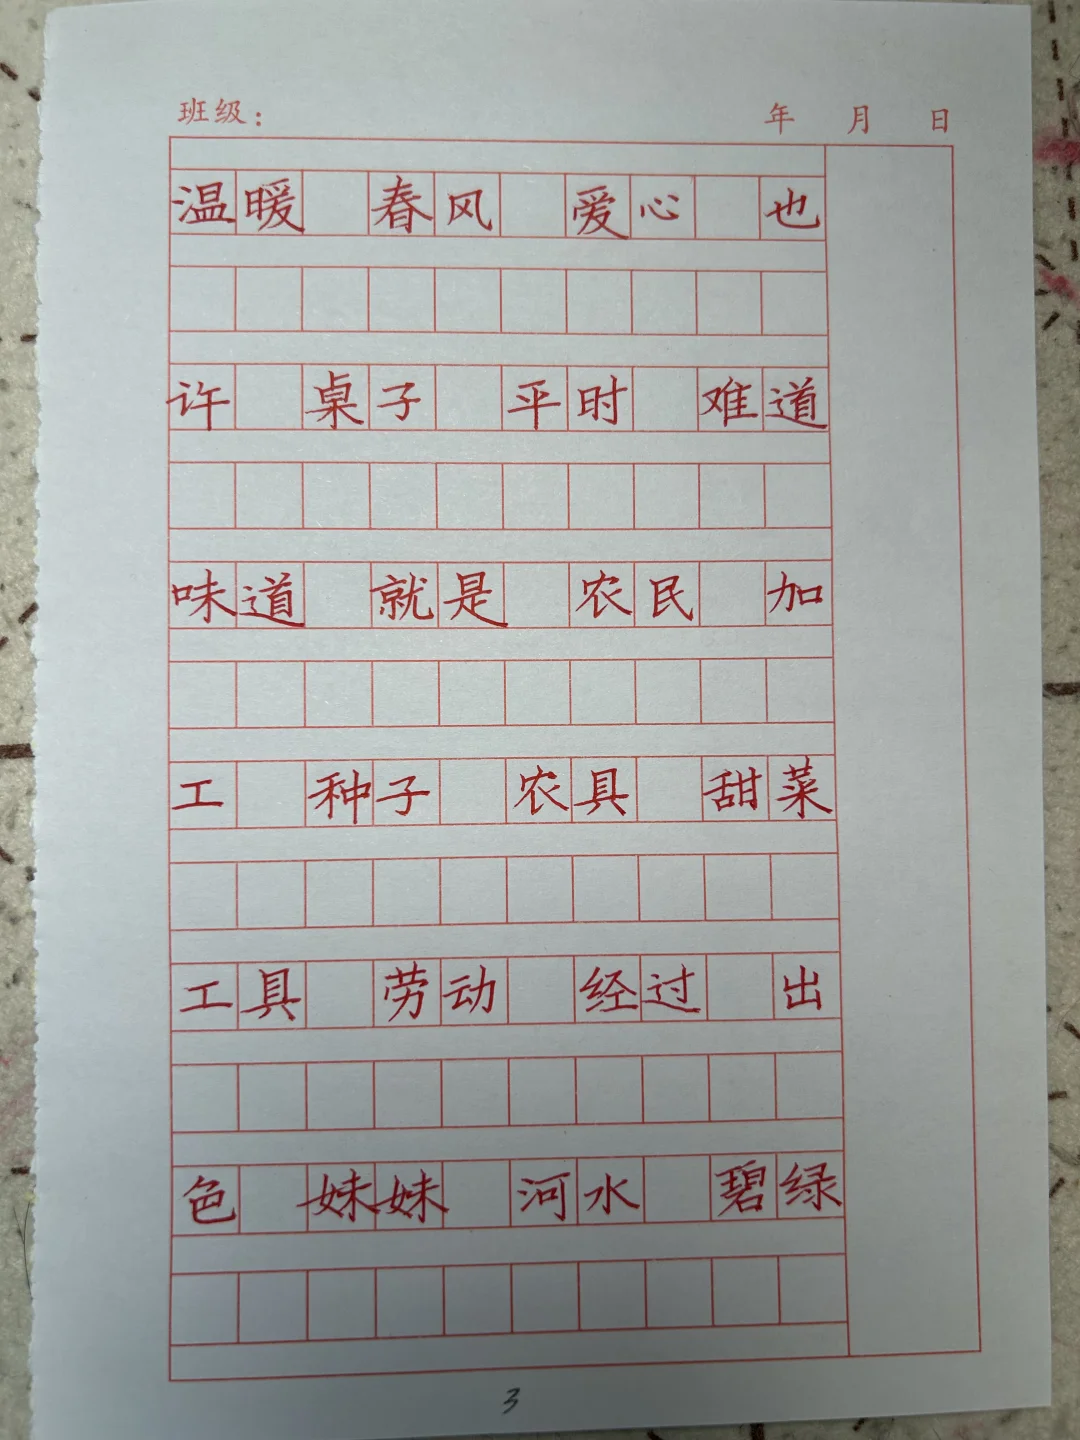 班级： 年 月 日
温暖 春风 爱心 也
许 桌子 平时 难道
味道 就是 农民 加
工 种子 农具 甜菜
工具 劳动 经过 出
色 妹妹 河水 碧绿
3